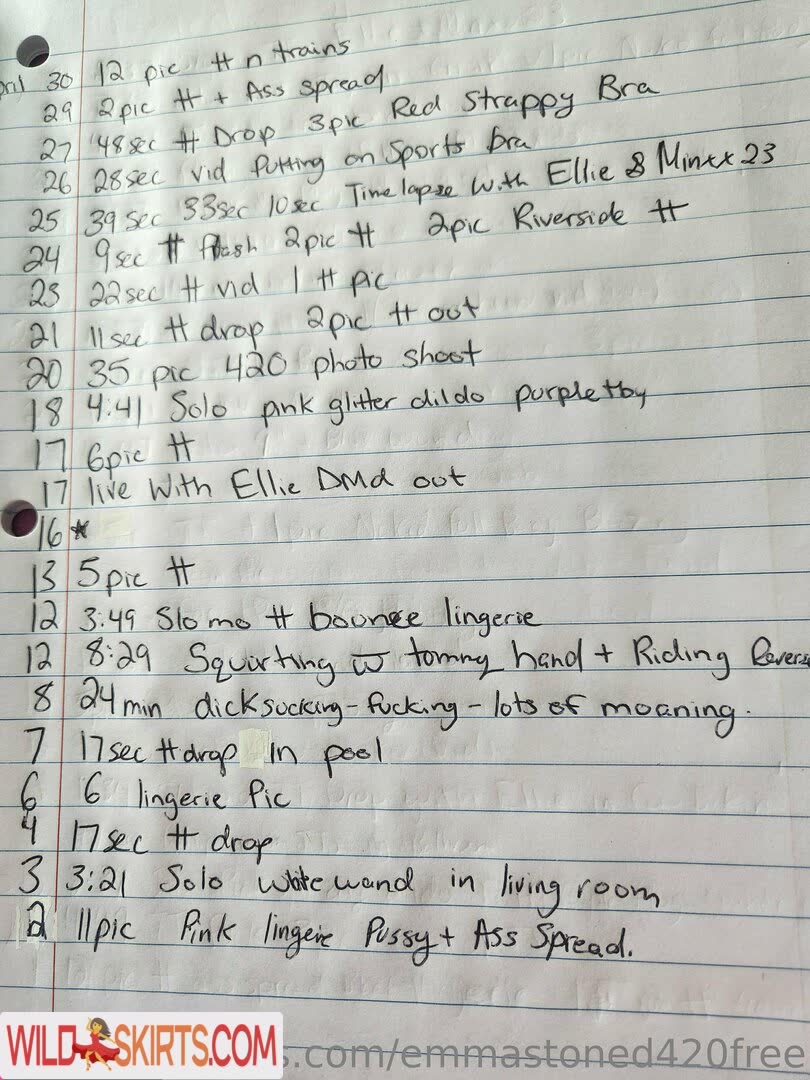 30 12 pic tt n trains
29 2pic tt + Ass spread
27 48sec tt Drop 3pic Red Strappy Bra
26 28sec vid Putting on Sports bra
25 39sec 33sec 10sec Timelapse with Ellie & Minxx 23
24 9sec tt flash 2pic tt 2pic Riverside tt
23 22sec tt vid 1 tt pic
21 11sec tt drop 2pic tt out
20 35 pic 420 photo shoot
18 4:41 Solo pink glitter dildo purple toy
17 6pic tt
17 live With Ellie DMd out
16 *
13 5pic tt
12 3:49 Slo mo tt bounce lingerie
12 8:29 Squirting w tommy hand + Riding Revers
8 24min dicksucking - fucking - lots of moaning.
7 17sec tt drop in pool
6 6 lingerie Pic
4 17sec tt drop
3 3:21 Solo white wand in living room
2 11pic Pink lingerie Pussy + Ass Spread.
WILDSKIRTS.COM s.com/emmastoned420free